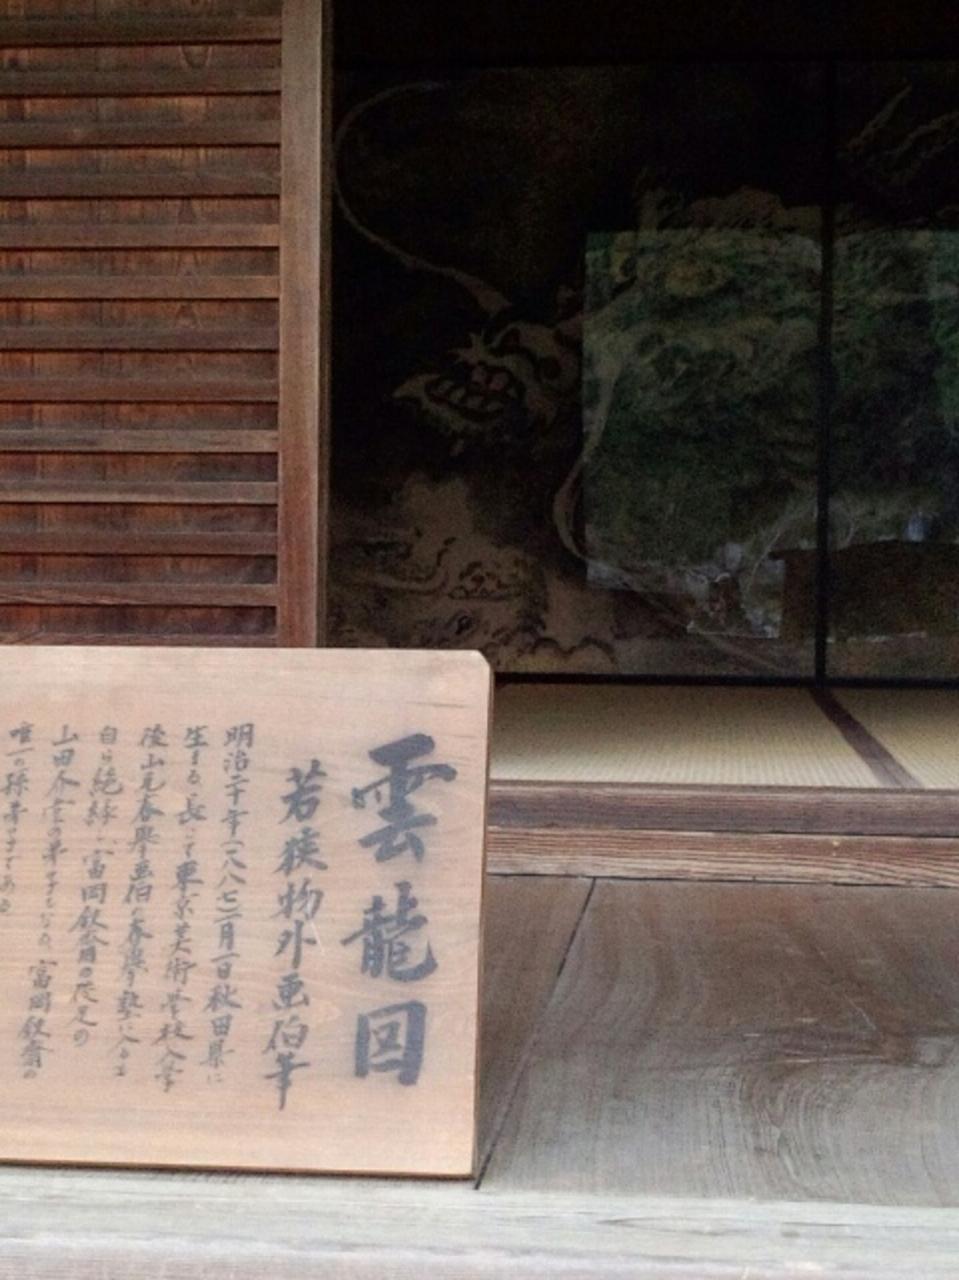 雲龍図
若狭物外画伯筆
明治二十年(一八八七)一月一日秋田県に
生まる 長じて東京美術学校入学
後山元春挙画伯の春挙塾に入るも
自ら絶縁し富岡鉄斎の従兄の
山田介堂の弟子となり、富岡鉄斎の
唯一の孫弟子である